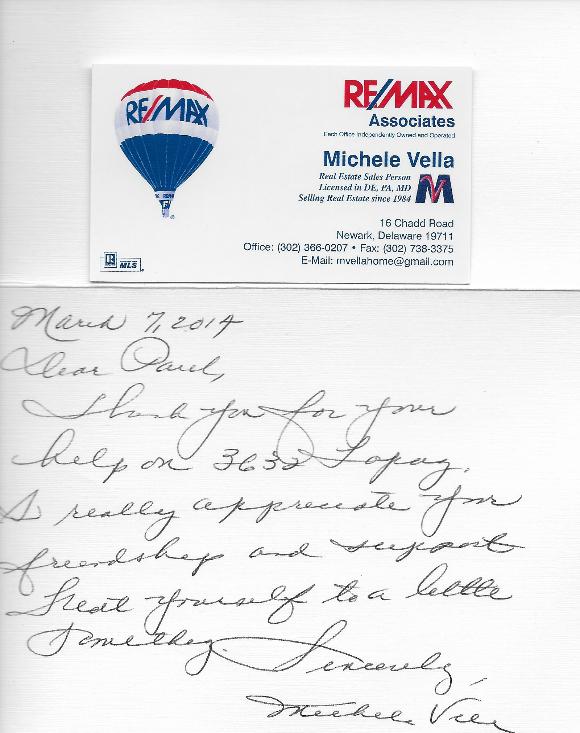 RE/MAX
RE/MAX
Associates
Each Office Independently Owned and Operated
Michele Vella
Real Estate Sales Person
Licensed in DE, PA, MD
Selling Real Estate since 1984
16 Chadd Road
Newark, Delaware 19711
Office: (302) 366-0207 • Fax: (302) 738-3375
E-Mail: mvellahome@gmail.com
MLS
March 7, 2014
Dear Paul,
Thank you for your
help on 3632 Topaz.
I really appreciate your
friendship and support
Treat yourself to a little
something. Sincerely,
Michele Vella